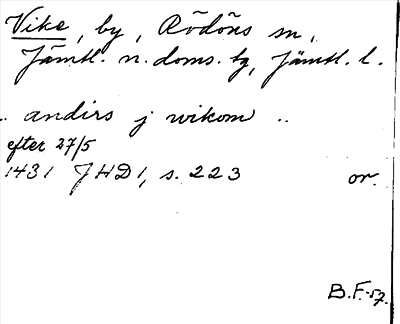 Vike, by, Rödöns sn,
Jämtl. n. doms. tg, Jämtl. l.
.. andirs j wikom ..
efter 27/5
1431 JHD1, s. 223 or.
B.F.-57.